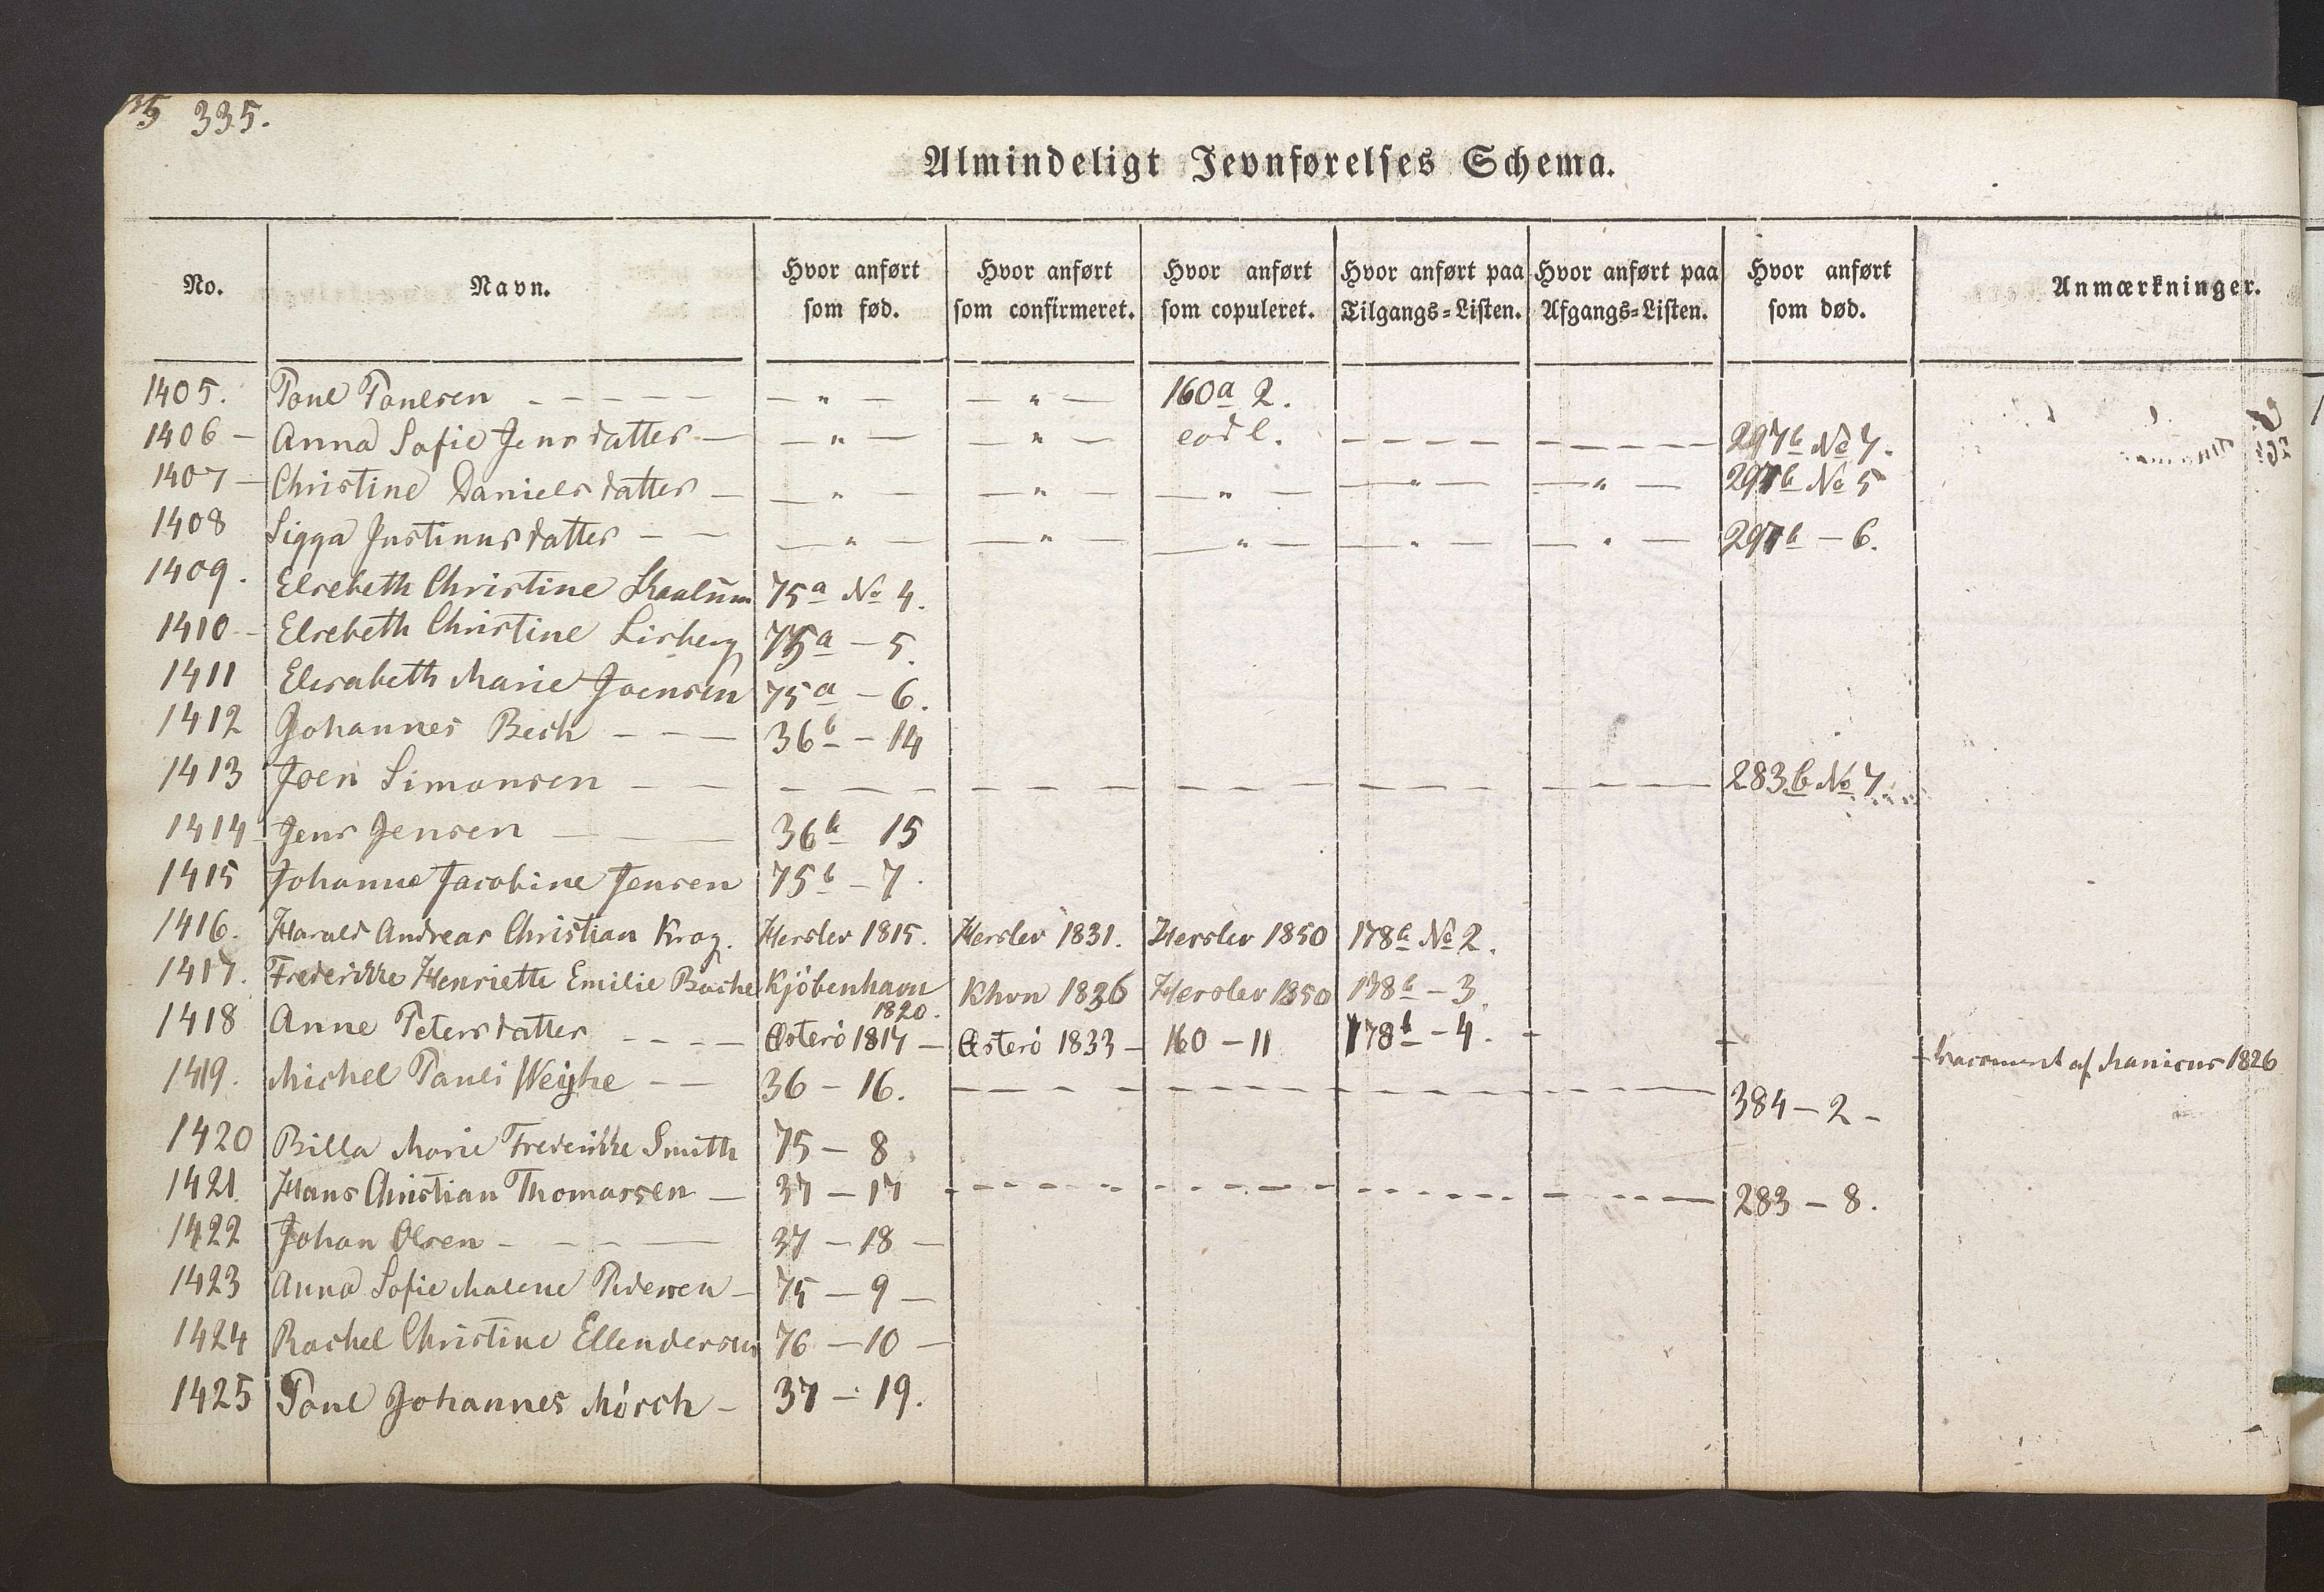 335.
Almindeligt Jevnførelses Schema.
No. Navn. Hvor anført som fød. Hvor anført som confirmeret. Hvor anført som copuleret. Hvor anført paa Tilgangs=Listen. Hvor anført paa Afgangs=Listen. Hvor anført som død. Anmærkninger.
1405. Poul Poulsen - - - - - — " — — " — 160a 2.
1406 - Anna Sofie Jensdatter — — " — — " — eod l. - - - - - - - - 297b No 7.
1407 - Christine Danielsdatter — — " — — " — — " — — " — — " — 297b No 5
1408 Sigga Justinusdatter - - — " — — " — — " — — " — — " — 297b - 6.
1409. Elsebeth Christine Skaalum 75a No 4.
1410 - Elsebeth Christine Lisberg 75a - 5.
1411 Elisabeth Marie Joensen 75a - 6.
1412 Johannes Bech - - - 36b - 14
1413 Joen Simonsen - - - - - - - - - - - - - - - - - 283b No 7
1414 Jens Jensen - - 36b 15
1415 Johanne Jacobine Jensen 75b - 7.
1416. Harald Andreas Christian Krog. Herslev 1815. Herslev 1831. Herslev 1850 178b No 2.
1417. Frederikke Henriette Emilie Bache Kjöbenhavn 1820. Khvn 1836 Herslev 1850 178b - 3.
1418 Anne Petersdatter - - - - Østerö 1817 - Østerö 1833 - 160 - 11 178b - 4. - - - af Manicus 1826
1419. Michel Pauli Weyhe - - 36 - 16. - - - - - - - - - - - - 384 - 2 -
1420 Billa Marie Frederikke Smith 75 - 8
1421. Hans Christian Thomassen - 37 - 17 - - - - - - - - - - - - 283 - 8.
1422 Johan Olsen - - - - 37 - 18 -
1423 Anna Sofie Malene Pedersen - 75 - 9 -
1424 Rachel Christine Ellendersen 76 - 10 -
1425 Poul Johannes Mörch - 37 - 19.